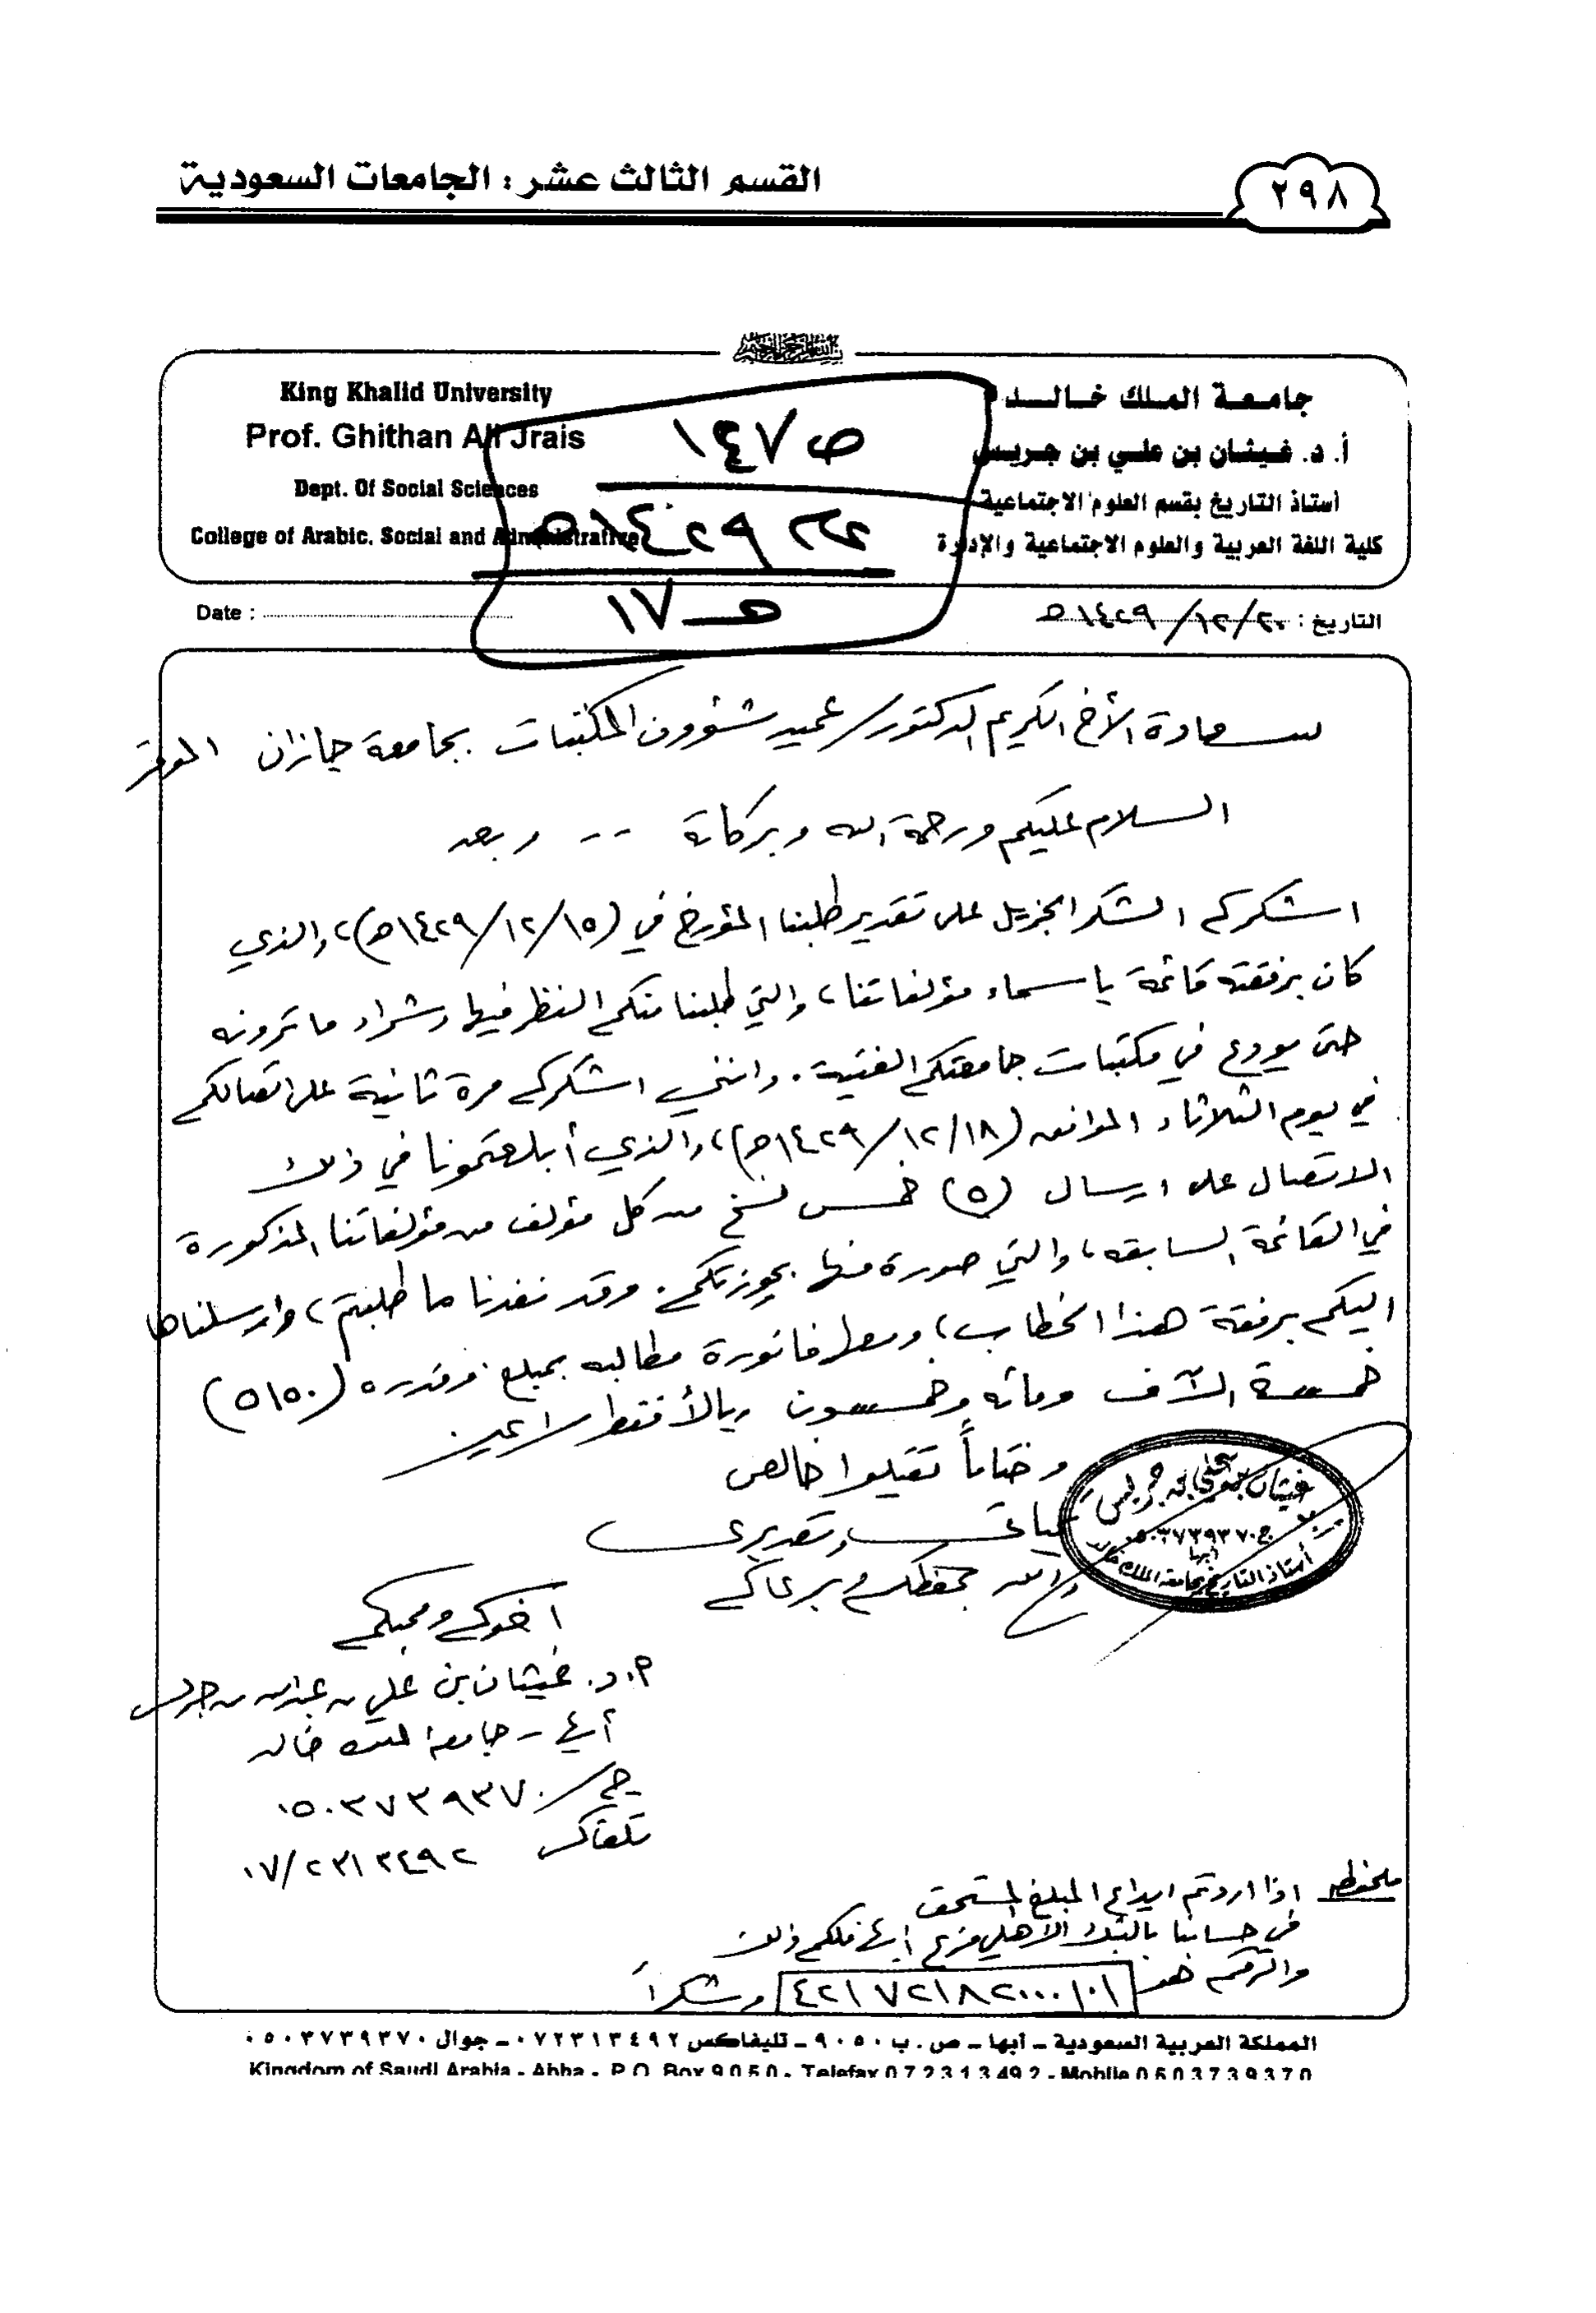 القسم الثالث عشر : الجامعات السعودية
٢٩٨
King Khalid University
Prof. Ghithan Ali Jrais
Dept. Of Social Sciences
College of Arabic. Social and Administrative
جامعة الملك خالد
أ. د. غيثان بن علي بن جريس
أستاذ التاريخ بقسم العلوم الاجتماعية
كلية اللغة العربية والعلوم الاجتماعية والإدارة
ص ١٤٧
١٤٢٩هـ
ص ١٧
Date :
التاريخ : ٢٠/ ١٢/ ١٤٢٩هـ
سعادة الأخ الكريم الدكتور/ عميد شؤون المكتبات بجامعة جازان الموقر
السلام عليكم ورحمة الله وبركاته -- وبعد
اشكركم الشكر الجزيل على تقدير طلبنا المؤرخ في (١٥/ ١٢/ ١٤٢٩هـ)، والذي
كان برفقته قائمة باسماء مؤلفاتنا، والتي طلبنا منكم النظر فيها وشراء ما ترونه
حتى يودع في مكتبات جامعتكم الفتية. وانني اشكركم مرة ثانية على اتصالكم
في يوم الثلاثاء الموافق (١٨/ ١٢/ ١٤٢٩هـ)، والذي أبلغتمونا في ذلك
الاتصال على ارسال (٥) خمس نسخ من كل مؤلف من مؤلفاتنا المذكورة
في القائمة السابقة، والتي صورة منها بحوزتكم. وقد نفذنا ما طلبتم، وارسلناها
اليكم برفقة هذا الخطاب، ومعها فاتورة مطالبه بمبلغ وقدره (٥١٥٠)
خمسة الآف ومائه وخمسون ريالاً فقط لاغير.
وختاماً تقبلوا خالص
تحياتي وتقديري
والله يحفظكم ويرعاكم
غيثان بن علي بن جريس
ج ٠٥٠٣٧٣٩٣٧٠
أبها
أستاذ التاريخ بجامعة الملك خالد
اخوكم ومحبكم
أ. د. غيثان بن علي بن عبدالله بن جريس
أبها - جامعة الملك خالد
ج/ ٠٥٠٣٧٣٩٣٧٠
تلفاكس ٠٧/٢٣١٣٤٩٢
ملحوظه اذا اردتم ايداع المبلغ المستحق
في حسابنا بالبنك الأهلي فرع أبها فلكم ذلك
والرقم هو ٤٢١٧٢١٨٢٠٠٠١٠١ وشكراً
المملكة العربية السعودية - أبها - ص . ب ٩٠٥٠ - تليفاكس ٠٧٢٣١٣٤٩٢ - جوال ٠٥٠٣٧٣٩٣٧٠
Kingdom of Saudi Arabia - Abha - P.O. Box 9050 - Telefax 072313492 - Mobile 0503739370